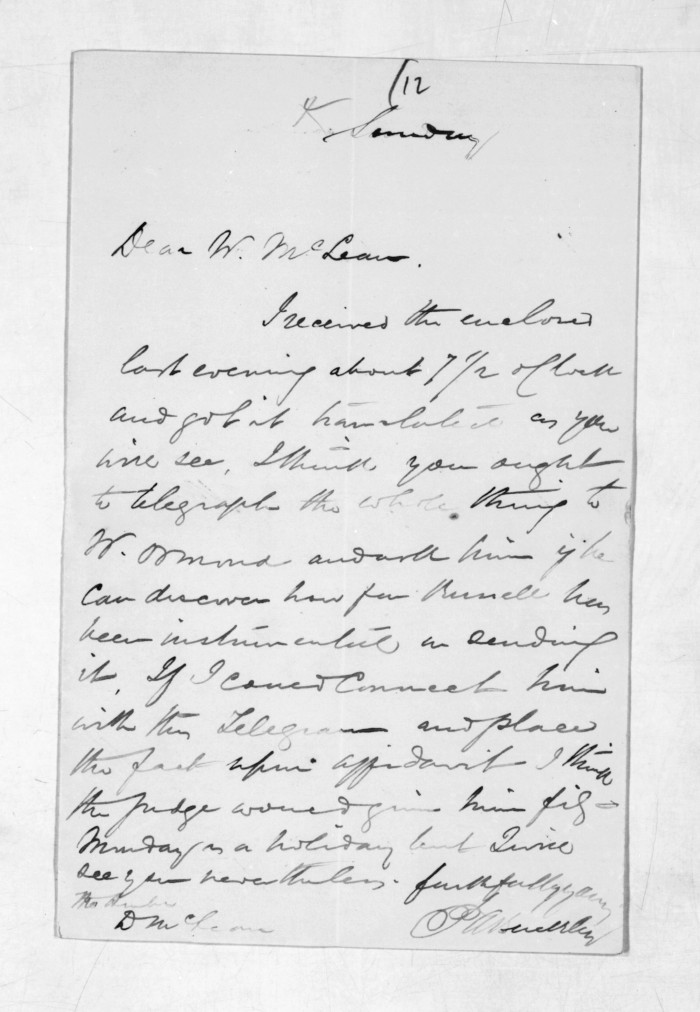 12
Sunday
Dear W. McLean.
I received the enclosed
last evening about 7 1/2 o'Clock
and got it translated as you
will see, I think you ought
to telegraph the whole thing to
W. Ormond and ask him if he
can discover how far Russell has
been instrumental in sending
it, If I could Connect him
with this Telegram and place
the fact upon affidavit I think
the Judge would give him
Monday is a holiday but I will
see you nevertheless. faithfully yours
The
D McLean